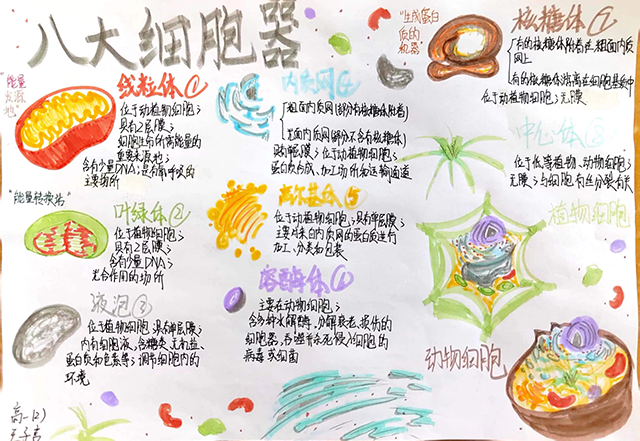 八大细胞器
"生成蛋白
质的
机器"
核糖体⑦
有的核糖体附着在粗面内质
网上
有的核糖体游离在细胞基质中
位于动植物细胞；无膜
"能量
线粒体①
位于动植物细胞；
具有2层膜；
细胞生命所需能量的
重要来源地；
含有少量DNA；是有氧呼吸的
主要场所
内质网④
粗面内质网(部分有核糖体附着)
光面内质网(部分不含有核糖体)
单层膜；位于动植物细胞；
蛋白质合成、加工场所及运输通道
中心体⑧
位于低等植物、动物细胞；
无膜；与细胞有丝分裂有关
"能量转换站"
叶绿体②
位于植物细胞；
具有2层膜；
含有少量DNA；
光合作用的场所
高尔基体⑤
位于动植物细胞；具单层膜；
主要对来自内质网的蛋白质进行
加工、分类和包装
植物细胞
液泡③
位于植物细胞；具有单层膜；
内有细胞液，含糖类、无机盐、
蛋白质和色素等；调节细胞内的
环境
溶酶体⑥
主要在动物细胞；
含多种水解酶，分解衰老、损伤的
细胞器，吞噬并杀死侵入细胞的
病毒或细菌
动物细胞